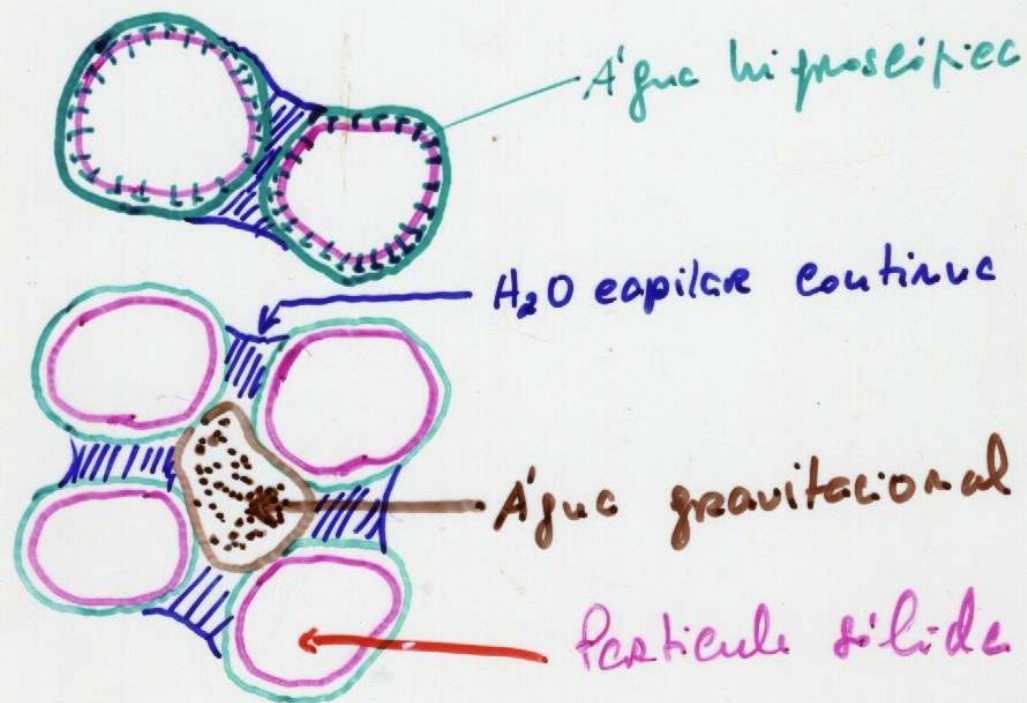 Água higroscópica
H₂O capilar continua
Água gravitacional
Partícula sólida